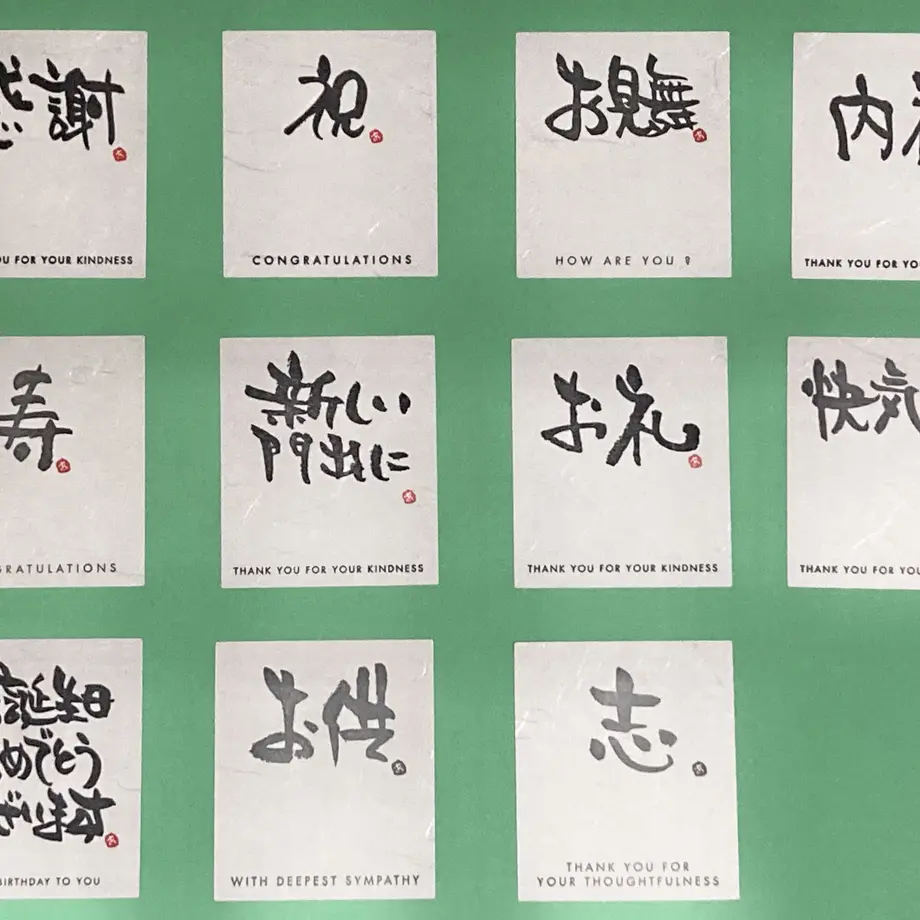 感謝
U FOR YOUR KINDNESS
祝
CONGRATULATIONS
お見舞
HOW ARE YOU ?
内祝
THANK YOU FOR YO
寿
RATULATIONS
新しい
門出に
THANK YOU FOR YOUR KINDNESS
お礼
THANK YOU FOR YOUR KINDNESS
快気
THANK YOU FOR YOU
誕生日
めでとう
ざいます
BIRTHDAY TO YOU
お供
WITH DEEPEST SYMPATHY
志
THANK YOU FOR
YOUR THOUGHTFULNESS